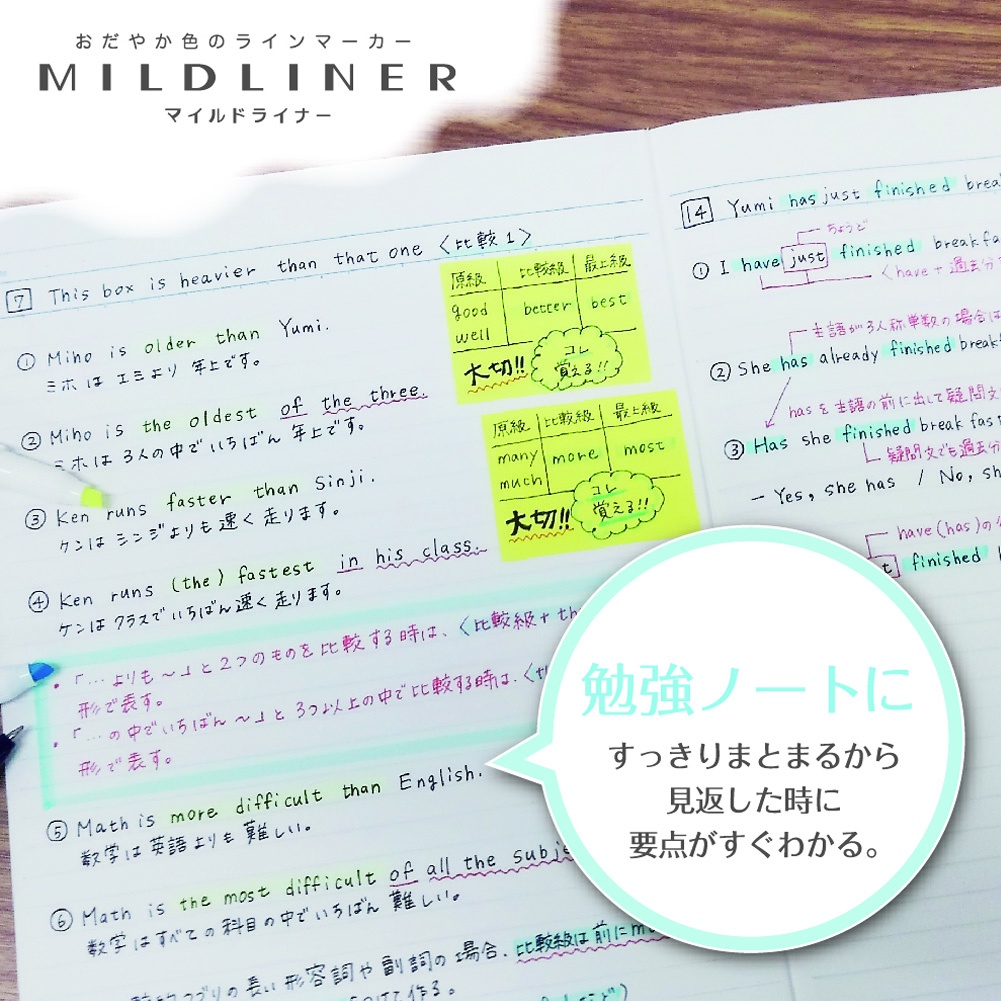 おだやか色のラインマーカー
MILDLINER
マイルドライナー
7 This box is heavier than that one 〈比較1〉
① Miho is older than Yumi.
ミホは エミより 年上です。
② Miho is the oldest of the three.
ミホは 3人の中でいちばん 年上です。
③ Ken runs faster than Sinji.
ケンは シンジよりも 速く 走ります。
④ Ken runs (the) fastest in his class.
ケンは クラスで いちばん 速く 走ります。
・「…よりも〜」と2つのものを比較する時は、〈比較級+th
形で表す。
・「…の中でいちばん〜」と3つ以上の中で比較する時は、〈th
形で表す。
⑤ Math is more difficult than English.
数学は 英語よりも 難しい。
⑥ Math is the most difficult of all the subje
数学はすべての科目の中でいちばん 難しい。
の長い形容詞や副詞の場合、比較級は前にm
けて作る。
原級 比較級 最上級
good better best
well
大切!! コレ
覚える!!
原級 比較級 最上級
many more most
much
大切!! コレ
覚える!!
14 Yumi has just finished brea
ちょうど
① I have just finished breakfa
〈have+過去分
主語が3人称単数の場合は
② She has already finished break
hasを主語の前に出して疑問文
③ Has she finished breakfas
疑問文でも過去分
— Yes, she has / No, sh
have(has)の
t finished
勉強ノートに
すっきりまとまるから
見返した時に
要点がすぐわかる。